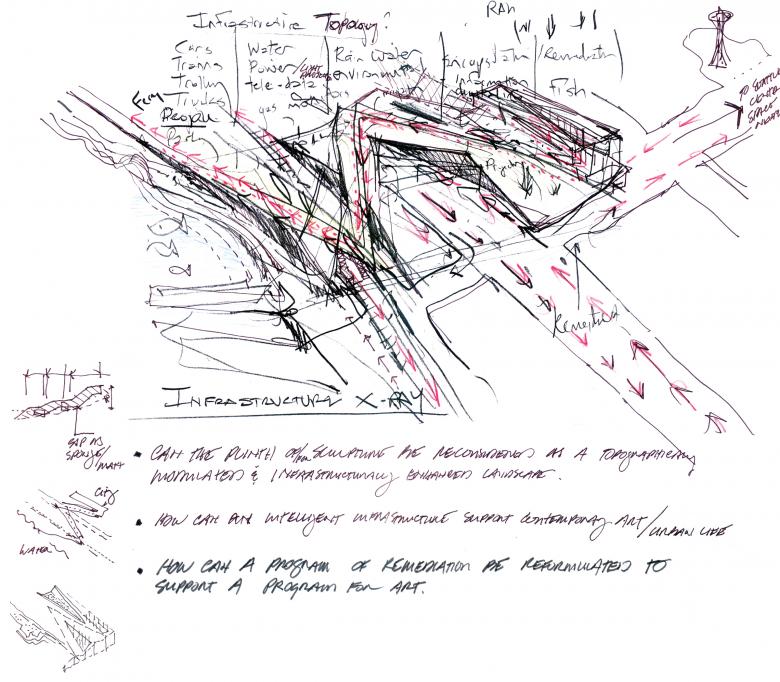 Infrastructure Topology?
RAIN
Cars
Trains
Trolley
Trucks
People
Water
Power/
tele-data
gas
Rain Water
environmental
information
Remediation
Fish
Ferry
TO SEATTLE
CENTER
SPACE
NEEDLE
INFRASTRUCTURAL X-RAY
• CAN THE PLINTH OF/FOR SCULPTURE BE RECONSIDERED AS A TOPOGRAPHICALLY
MODULATED & INFRASTRUCTURALLY ENHANCED LANDSCAPE.
SPONGE/
CITY
WATER
• HOW CAN AN INTELLIGENT INFRASTRUCTURE SUPPORT CONTEMPORARY ART/URBAN LIFE
• HOW CAN A PROGRAM OF REMEDIATION BE REFORMULATED TO
SUPPORT A PROGRAM FOR ART.